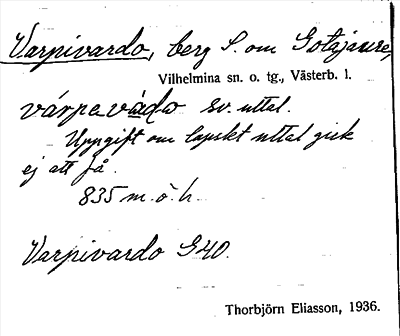 Varpivardo, berg S. om Gotsjaure,
Vilhelmina sn. o. tg., Västerb. l.
várpavádo sv. uttal.
Uppgift om lapskt uttal gick
ej att få.
835 m. ö. h.
Varpivardo G40.
Thorbjörn Eliasson, 1936.